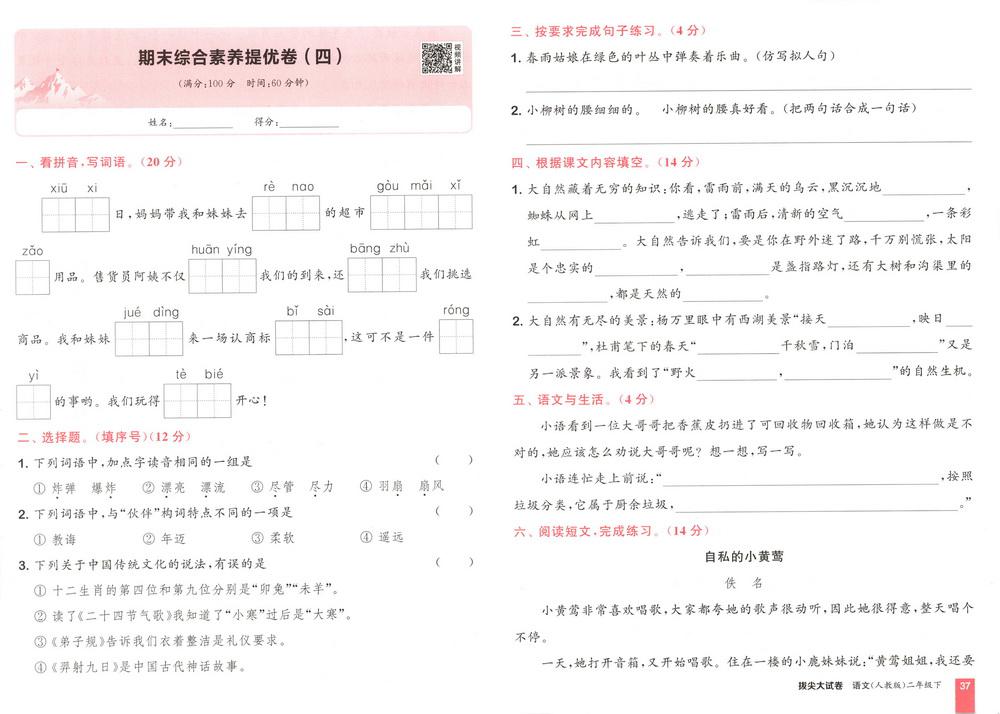 期末综合素养提优卷（四）
（满分:100分　时间:60分钟）
视频讲解
姓名:　得分:
一、看拼音,写词语。（20分）
xiū xi　rè nao　gòu mǎi xǐ
日,妈妈带我和妹妹去　的超市
zǎo　huān yíng　bāng zhù
用品。售货员阿姨不仅　我们的到来,还　我们挑选
jué dìng　bǐ sài　róng
商品。我和妹妹　来一场认商标　,这可不是一件
yì　tè bié
的事哟。我们玩得　开心!
二、选择题。（填序号）（12分）
1. 下列词语中,加点字读音相同的一组是（　）
① 炸弹　爆炸　② 漂亮　漂流　③ 尽管　尽力　④ 羽扇　扇风
2. 下列词语中,与“伙伴”构词特点不同的一项是（　）
① 教诲　② 年迈　③ 柔软　④ 遥远
3. 下列关于中国传统文化的说法,有误的是（　）
① 十二生肖的第四位和第九位分别是“卯兔”“未羊”。
② 读了《二十四节气歌》我知道了“小寒”过后是“大寒”。
③《弟子规》告诉我们衣着整洁是礼仪要求。
④《羿射九日》是中国古代神话故事。
三、按要求完成句子练习。（4分）
1. 春雨姑娘在绿色的叶丛中弹奏着乐曲。（仿写拟人句）
2. 小柳树的腰细细的。　小柳树的腰真好看。（把两句话合成一句话）
四、根据课文内容填空。（14分）
1. 大自然藏着无穷的知识:你看,雷雨前,满天的乌云,黑沉沉地　,
蜘蛛从网上　,逃走了;雷雨后,清新的空气　,一条彩
虹　。大自然告诉我们,要是你在野外迷了路,千万别慌张,太阳
是个忠实的　,　是盏指路灯,还有大树和沟渠里的
　,都是天然的　。
2. 大自然有无尽的美景:杨万里眼中有西湖美景“接天　,映日
　”,杜甫笔下的春天“　千秋雪,门泊　”又是
另一派景象。我看到了“野火　,　”的自然生机。
五、语文与生活。（4分）
小语看到一位大哥哥把香蕉皮扔进了可回收物回收箱,她认为这样做是不
对的,她应该怎么劝说大哥哥呢? 想一想,写一写。
小语连忙走上前说:“　,按照
垃圾分类,它属于厨余垃圾,　”
六、阅读短文,完成练习。（14分）
自私的小黄莺
佚 名
小黄莺非常喜欢唱歌,大家都夸她的歌声很动听,因此她很得意,整天唱个
不停。
一天,她打开音箱,又开始唱歌。住在一楼的小鹿妹妹说:“黄莺姐姐,我还要
拔尖大试卷　语文（人教版）二年级下　37